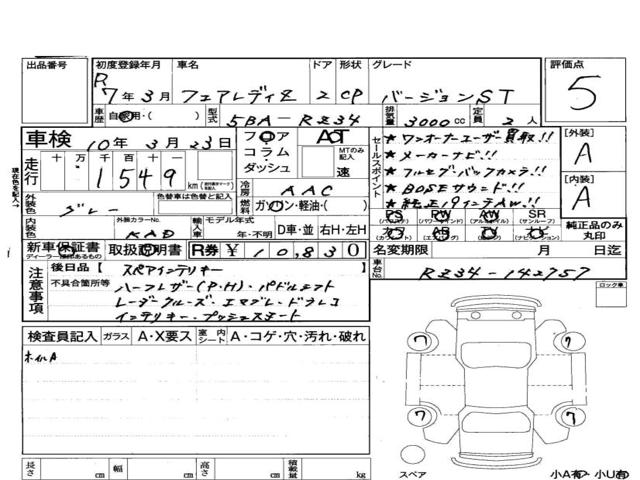 出品番号 初度登録年月 車名 ドア 形状 グレード 評価点
R 7年3月 フェアレディZ 2 CP バージョンST 5
車歴 自家用・( ) 型式 5BA-RZ34 排気量 3000cc 定員 2人
車検 10年 3月 23日 フロア・コラム・ダッシュ AOT MTのみ記入 速
走行 十 万 千 百 十 一
1 5 4 9 km
冷房 AAC
燃料 ガソリン・軽油・( )
セールスポイント
★ワンオーナーユーザー買取!!
★メーカーナビ!!
★フルセグ・バックカメラ!!
★BOSEサウンド!!
★純正19インチAW!!
[外装] A
[内装] A
現在色を記入→
外装色 グレー 色替車は色替と記入
内装色 外装カラーNo. KAD 輸入車 モデル年式 年・不明 D車・並 右H・左H
PS PW AW SR
純正品のみ丸印
新車保証書 ディーラー捺印あるもの 取扱説明書 R券 ¥ 10,830 名変期限 月 日迄
注意事項
後日品【 スペアインテリキー 】
不具合箇所等
ハーフレザー(P・H)・パドルシフト
レーダークルーズ・エマブレ・ドラレコ
インテリキー・プッシュスタート
車台No. RZ34-142757
ロック車
検査員記入 ガラス A・X要ス 室内シート A・コゲ・穴・汚れ・破れ
ホイルA
7 7
7 7
スペア
小A有 小U有
長さ cm 幅 cm 高さ cm 積載量 kg